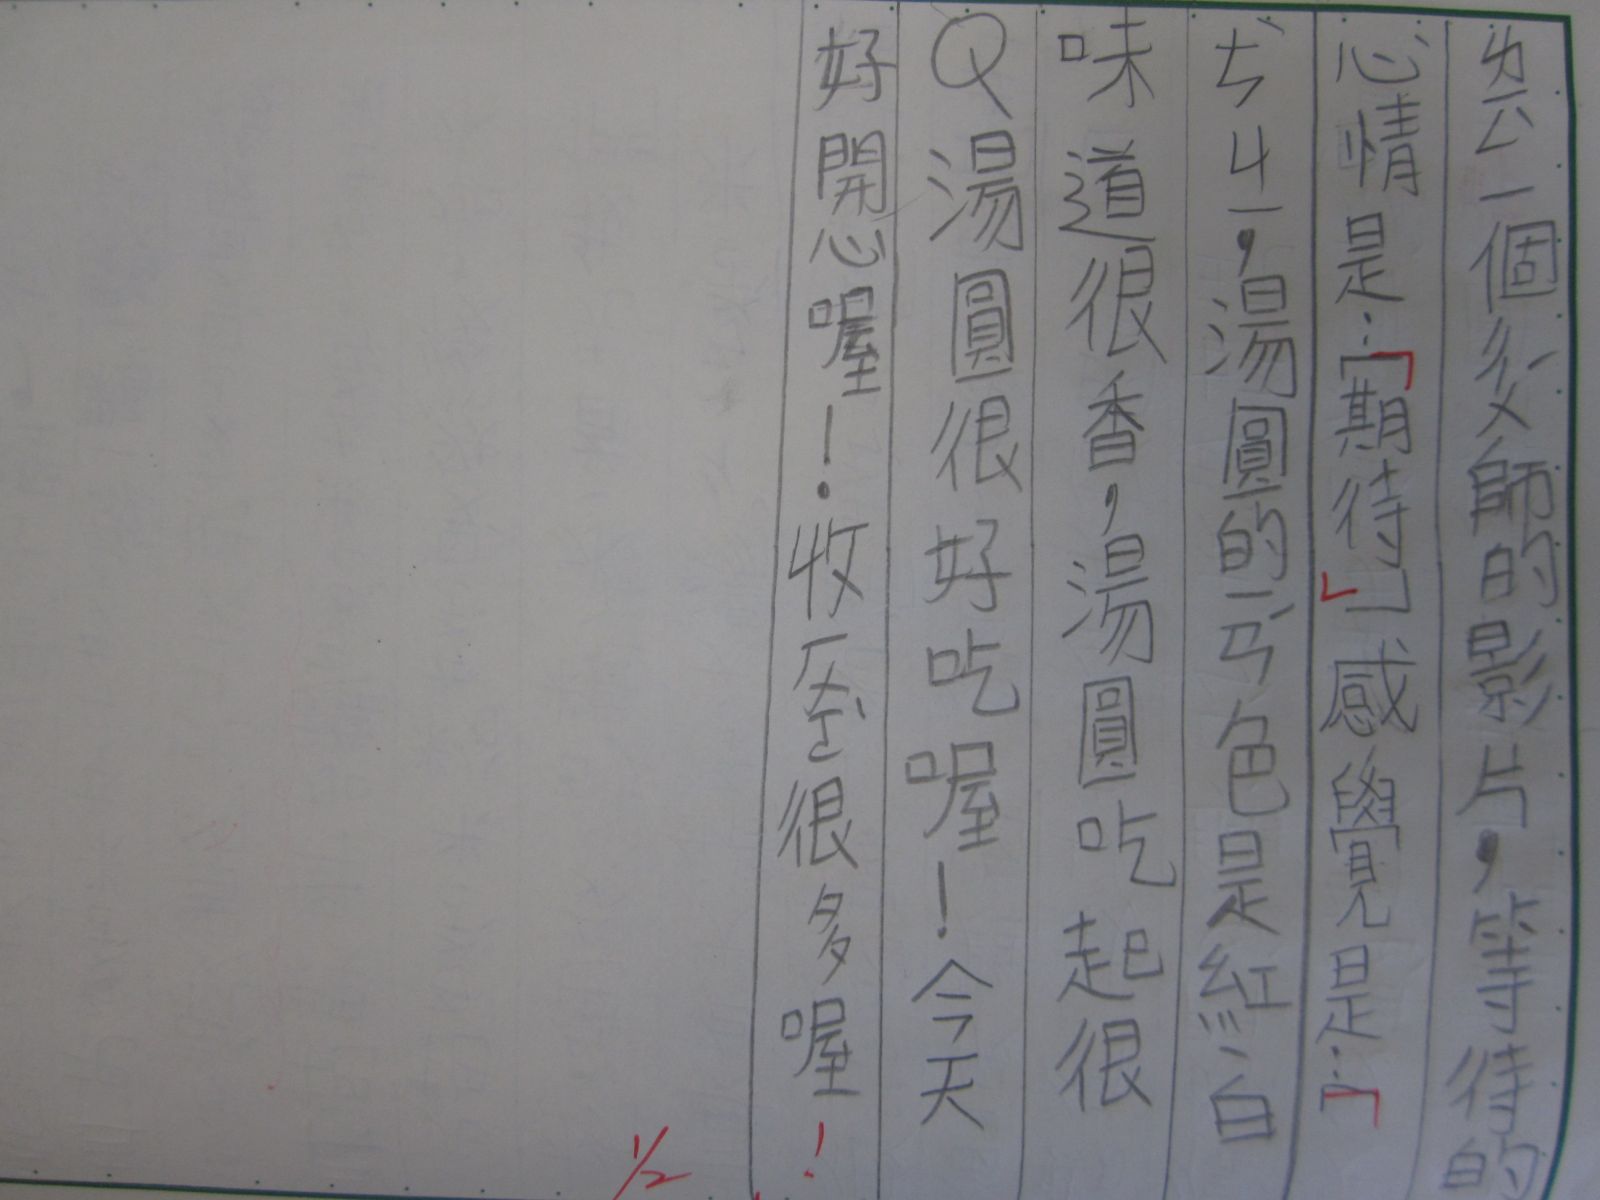 ㄌㄧㄥˊ一個ㄆㄛˊ師的影片，等待的
心情是：「期待」感覺是：「
ㄘㄐㄧ，湯圓的ㄧㄢˊ色是紅、白
味道很香，湯圓吃起很
Q湯圓很好吃喔！今天
好開心喔！收ㄏㄨㄛˋ很多喔！
1/2